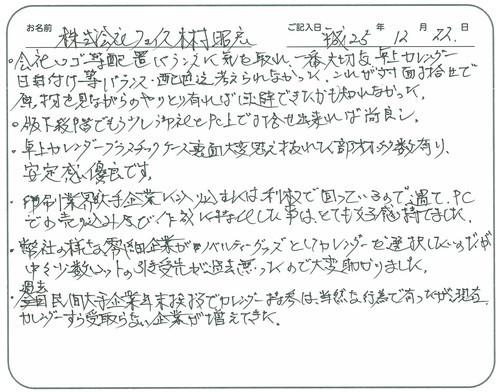 お名前 株式会社フェイス 木村昭宏 ご記入日 平成25年12月22日
・会社ロゴ等配置バランスに気を取れ、一番大切な卓上カレンダー
日付け等バランス・配色迄考えられなかった。これが対面打合せで
見ながらのやりとり有れば回避できたかも知れなかった。
・版下段階でもう少し御社とPC上で打合せ出来れば尚良し。
・卓上カレンダープラスチックケース裏面大変考え抜れて部材が多数有り、
安定感優良です。
・印刷業界大手企業に込むには利権で困っているので、PC
での売り込み及び作成に特化した事は、とても好感持てました。
・弊社の様な零細企業がノベルティーグッズとしてカレンダーを選択したいのだが
中々少数ロットの引受先が過去悪ったので大変助かりました。
過去
民間大手企業年末挨拶でカレンダー持参は、当然な行為で有ったが現在
カレンダーすら受取らない企業が増えてきた。